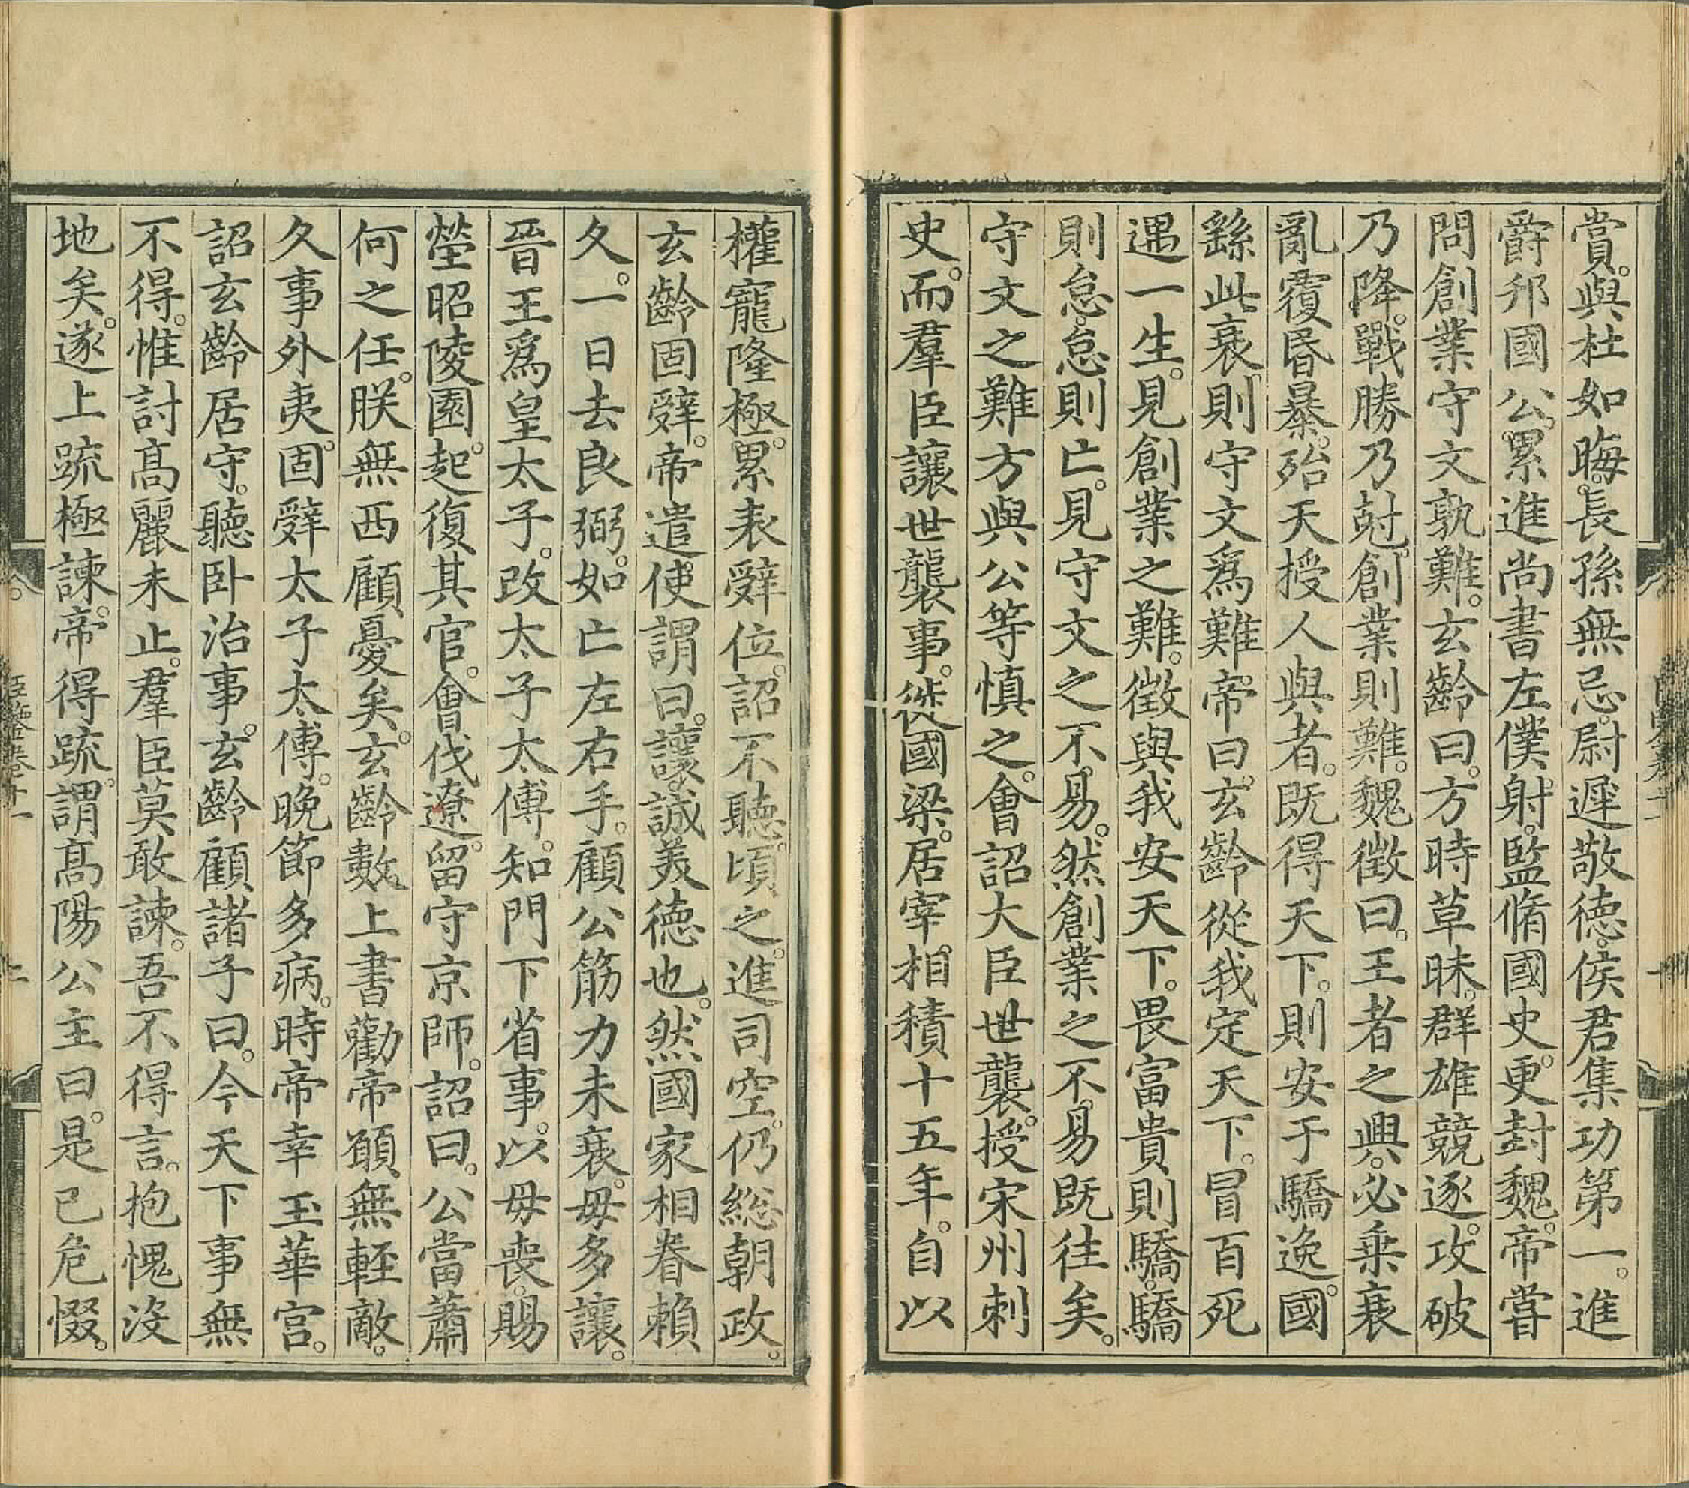 賞。與杜如晦。長孫無忌。尉遲敬德。侯君集功第一。進
爵邗國公。累進尚書左僕射。監脩國史。更封魏。帝嘗
問創業守文孰難。玄齡曰。方時草昧。群雄競逐。攻破
乃降。戰勝乃尅。創業則難。魏徵曰。王者之興。必乗衰
亂。覆昏暴。殆天授人與者。既得天下。則安于驕逸。國
繇此衰。則守文爲難。帝曰。玄齡從我定天下。冒百死
遇一生。見創業之難。徵與我安天下。畏富貴則驕。驕
則怠。怠則亡。見守文之不易。然創業之不易既往矣。
守文之難方與公等慎之。會詔大臣世襲。授宋州刺
史。而羣臣讓世襲事。徙國梁。居宰相積十五年。自以
權寵隆極。累表辤位。詔不聽。頃之。進司空。仍総朝政。
玄齡固辤。帝遣使謂曰。讓。誠美德也。然國家相眷賴
久。一日去良弼。如亡左右手。顧公筋力未衰。毋多讓。
晉王爲皇太子。改太子太傅。知門下省事。以母喪。賜
塋昭陵園。起復其官。會伐遼。留守京師。詔曰。公當蕭
何之任。朕無西顧憂矣。玄齡數上書勸帝願無輕敵。
久事外夷。固辤太子太傅。晩節多病。時帝幸玉華宮。
詔玄齡居守。聽卧治事。玄齡顧諸子曰。今天下事無
不得。惟討高麗未止。羣臣莫敢諫。吾不得言。抱愧沒
地矣。遂上疏極諫。帝得疏。謂高陽公主曰。是已危惙。